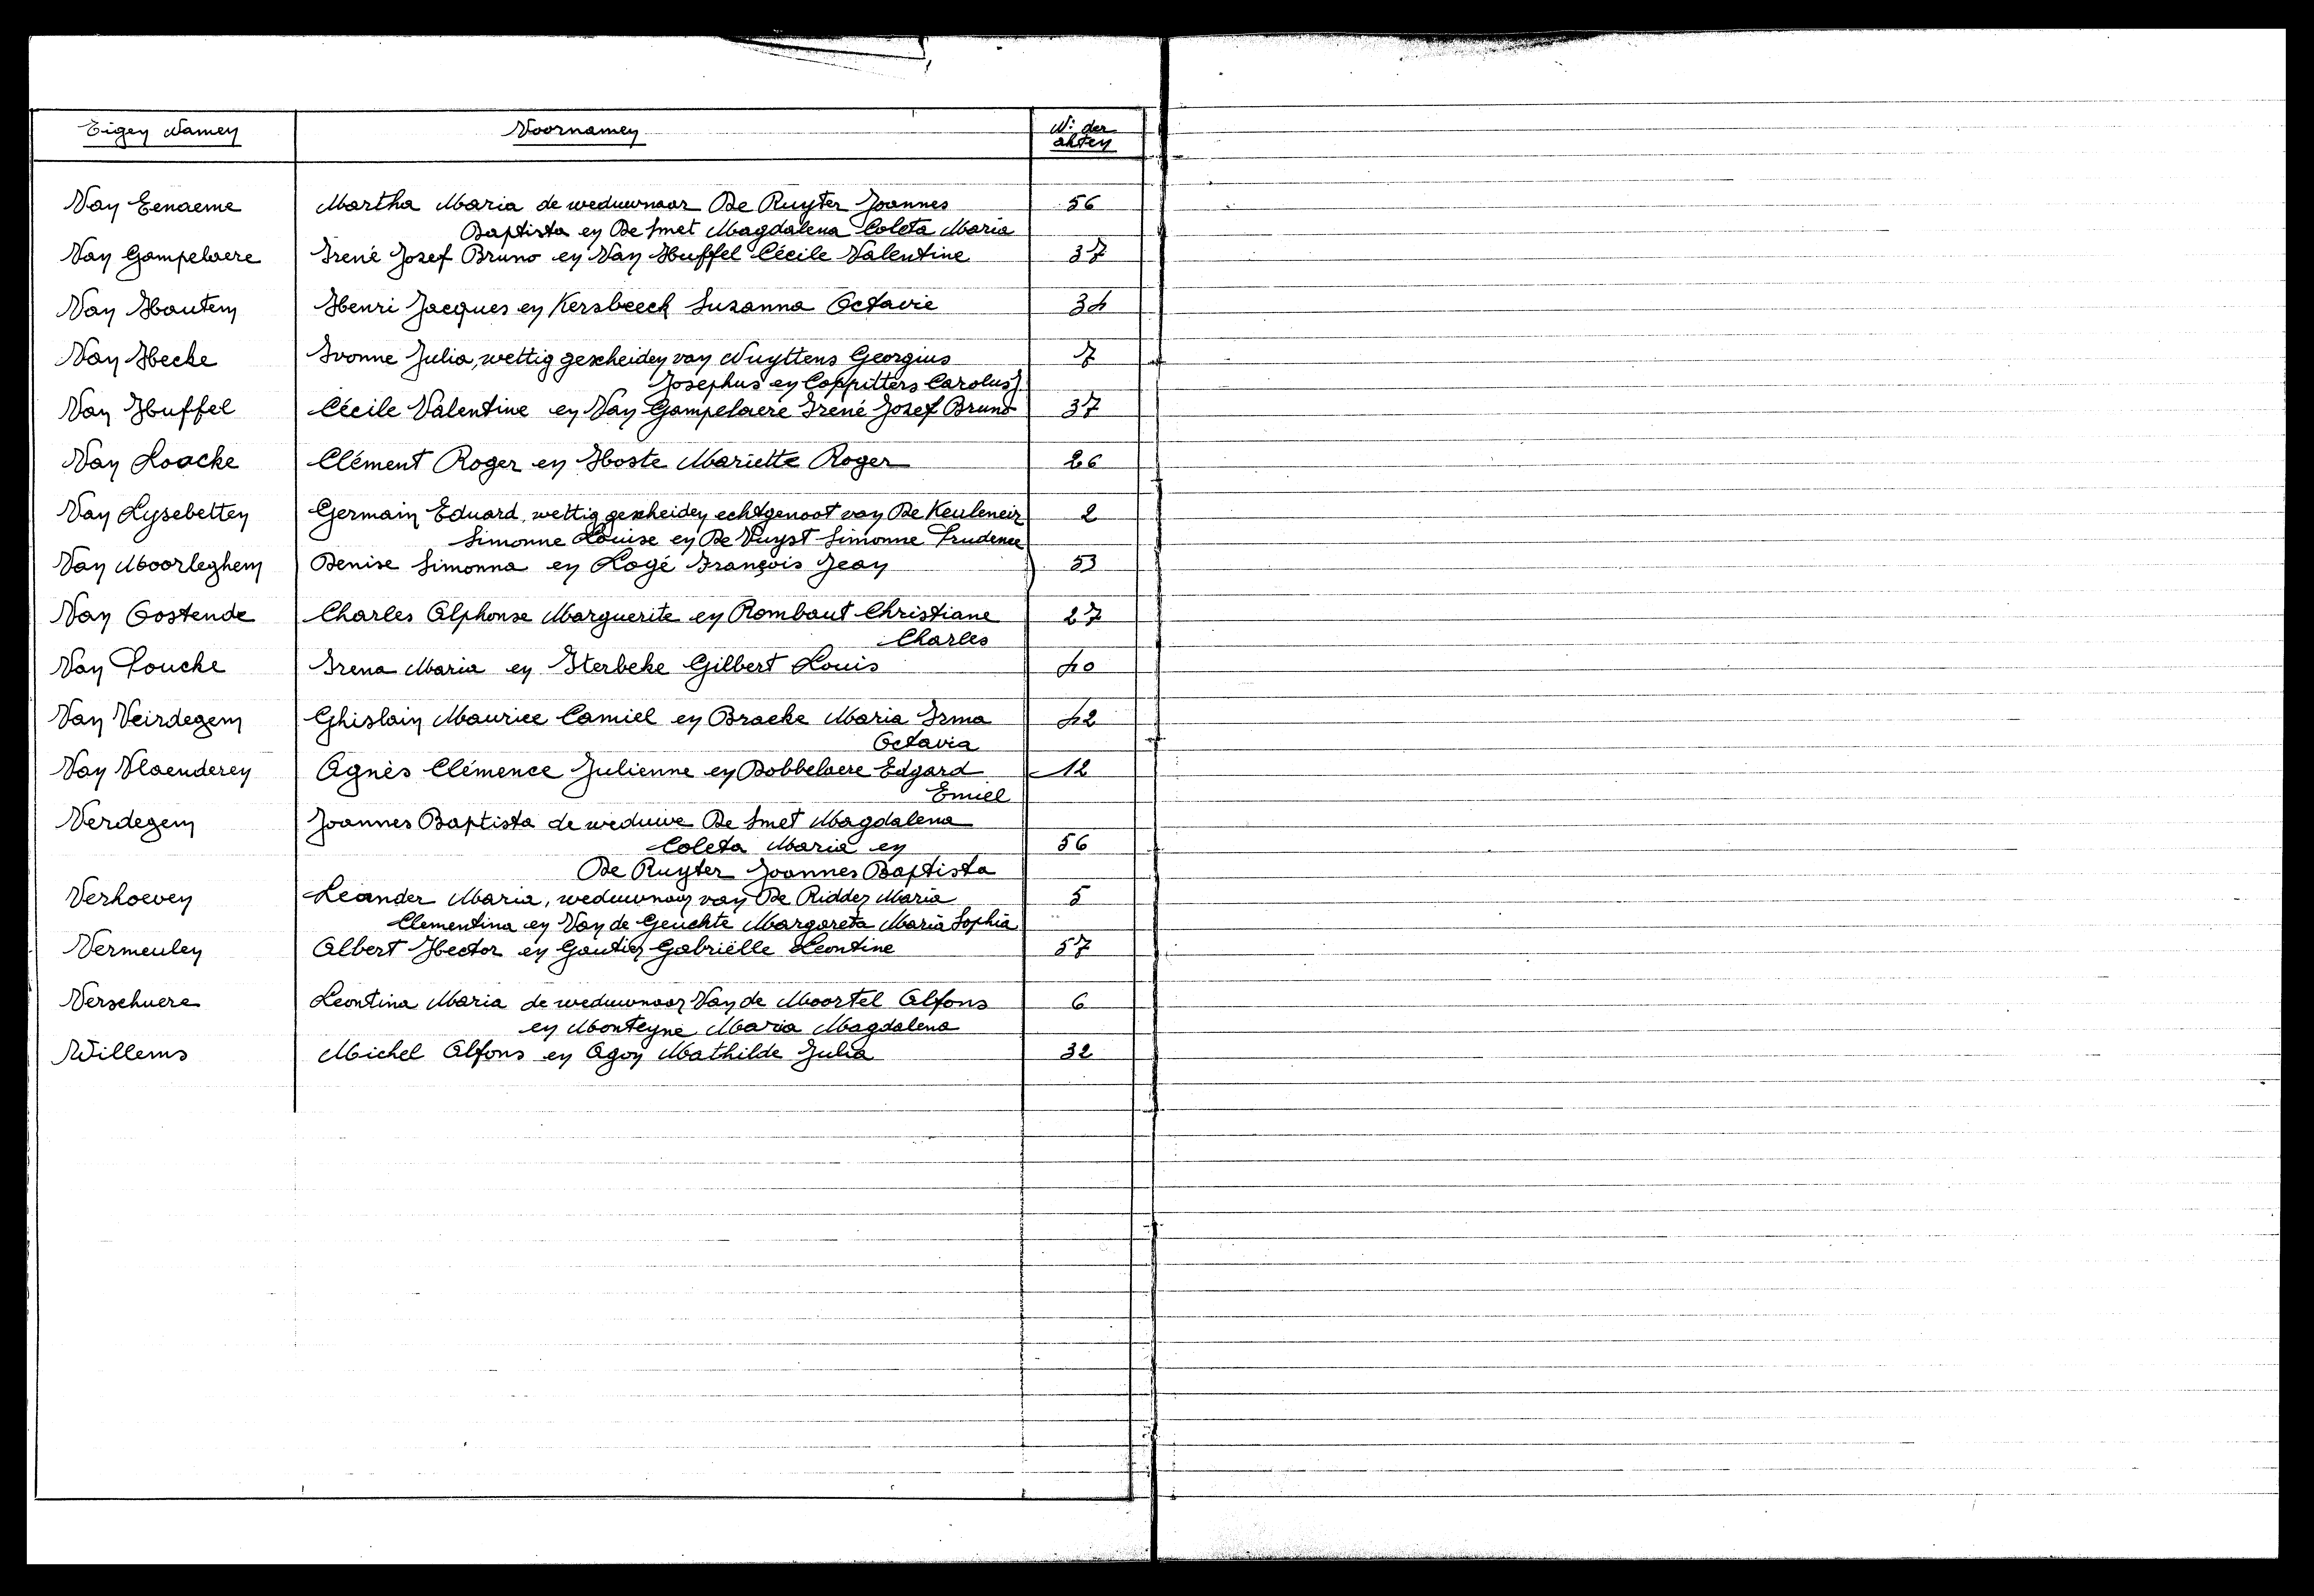 Eigen Namen Voornamen N: der akten
Van Eenaeme Martha Maria de weduwnaar De Ruyter Joannes 56
Baptista en De Smet Magdalena Coleta Maria
Van Gampelaere Irené Jozef Bruno en Van Huffel Cécile Valentine 37
Van Hautem Henri Jacques en Kersbeeck Suzanna Octavie 34
Van Hecke Ivonne Julia, wettig gescheiden van Nuyttens Georgius 7
Josephus en Coppitters Carolus J
Van Huffel Cécile Valentine en Van Gampelaere Irené Jozef Bruno 37
Van Laacke Clément Roger en Hoste Mariette Roger 26
Van Lysebetten Germain Eduard, wettig gescheiden echtgenoot van De Keuleneir 2
Simonne Louise en De Vuyst Simonne Prudence
Van Moorleghem Denise Simonna en Logé François Jean 53
Van Oostende Charles Alphonse Marguerite en Rombaut Christiane 27
Charles
Van Poucke Irena Maria en Sterbeke Gilbert Louis 40
Van Veirdegem Ghislain Maurice Camiel en Bracke Maria Irma 42
Octavia
Van Vlaenderen Agnès Clémence Julienne en Dobbelaere Edgard 12
Emiel
Verdegem Joannes Baptista de weduwe De Smet Magdalena
Coleta Maria en 56
De Ruyter Joannes Baptista
Verhoeven Leander Maria, weduwnaar van De Ridder Maria 5
Clementina en Van de Geuchte Margareta Maria Sophia
Vermeulen Albert Hector en Gautier Gabriëlle Leontine 57
Verschuere Leontina Maria de weduwnaar Van de Moortel Alfons 6
en Monteyne Maria Magdalena
Willems Michel Alfons en Agon Mathilde Julia 32